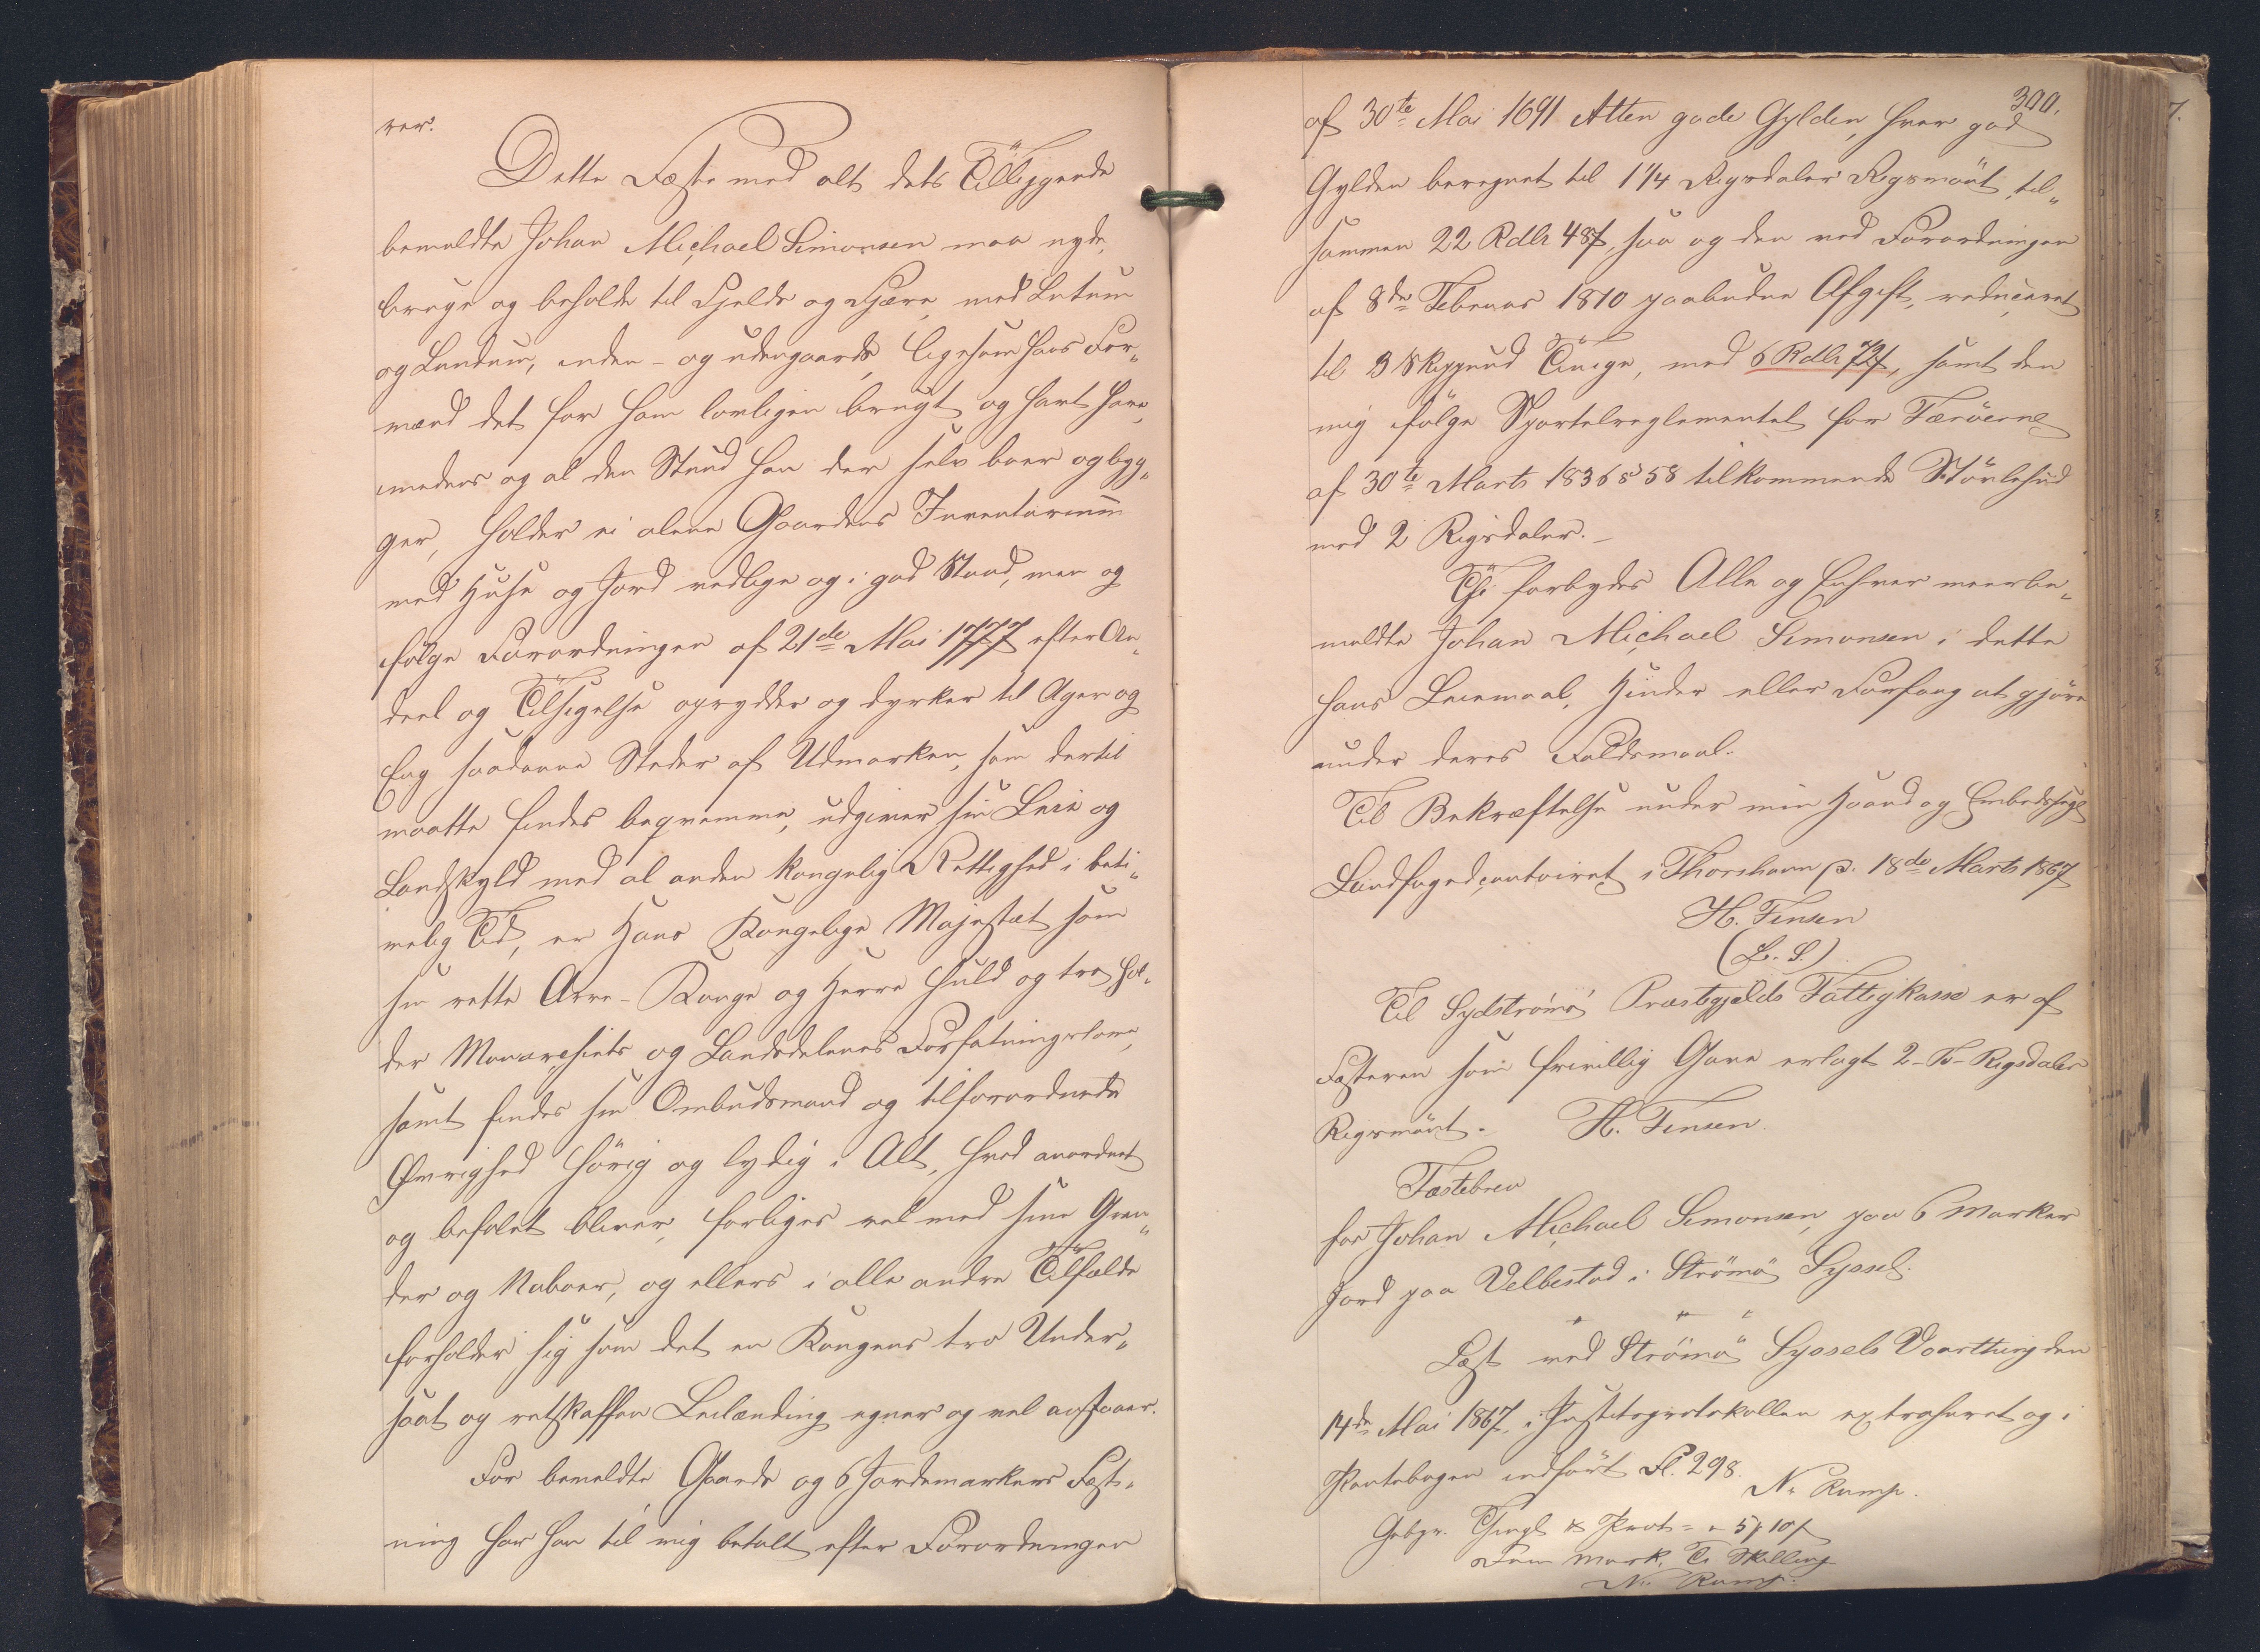 ver.
Dette Fæste med alt dets Tilliggende
bemeldte Johan Michael Simonsen maa nyde,
bruge og beholde til Fjelds og Fjære, med Lutum
og Lundum, inden- og udengaards, ligesom hans For„
mænd det før ham lovligen brugt og havt have,
imedens og al den Stund han der selv boer og byg„
ger, holder ei alene Gaardens Inventarium
med Huse og Jord vedlige og i god Stand, men og
ifølge Forordningen af 21de Mai 1777 efter An„
deel og Tilsigelse oprydder og dyrker til Ager og
Eng saadanne Steder af Udmarken, som dertil
maatte findes beqvemme, udgiver sin Leie og
Landskyld med al anden kongelig Rettighed i beti„
melig Tid, er Hans Kongelige Majestæt som
sin rette Arve-Konge og Herre huld og tro, hol„
der Monarchiets og Landsdelenes Forfatningslove,
samt findes sin Ombudsmand og tilforordnede
Øvrighed hörig og lydig i Alt, hvad anordnet
og befalet bliver, forliges vel med sine Gran„
der og Naboer, og ellers i alle andre Tilfælde
forholder sig som det en Kongens tro Under„
saat og retskaffen Leilænding egner og vel anstaaer.
For bemeldte Gaards og 6 Jordemarkers Fæst„
ning har han til mig betalt efter Forordningen
300.
af 30te Mai 1691 Atten gode Gylden, hver god
Gylden beregnet til 1 1/4 Rigsdaler Rigsmönt, til„
sammen 22 Rdlr 48 s, saa og den ved Forordningen
af 8de Februar 1810 paabudne Afgift, reduceret
til 3 Skippund Tiuge, med 6 Rdlr 72 s, samt den
mig ifølge Sportelreglementet for Færöerne
af 30te Marts 1836 § 58 tilkommende Stövlehud
med 2 Rigsdaler.-
Thi forbydes Alle og Enhver meerbe„
meldte Johan Michael Simonsen i dette
hans Leiemaal, Hinder eller Forfang at gjöre
under deres Faldsmaal.
Til Bekræftelse under min Haand og Embedssegl
Landfogedcontoiret i Thorshavn, d. 18de Marts 1867
H. Finsen
(L. S.)
Til Sydströmö Præstegjælds Fattigkasse er af
Fæsteren som frivillig Gave erlagt 2-To-Rigsdaler
Rigsmönt. H. Finsen.
Fæstebrev
for Johan Michael Simonsen, paa 6 Marker
Jord paa Velbestad i Strömö Syssel.
Læst ved Strömö Syssels Vaarthing den
14de Mai 1867, i Justitsprotokollen extraheret og i
Pantebogen indfört Fl. 298.
N. Rump.
Gebyr. Thingl & Prot = " 5 10 s
Fem Mark, Ti Skilling
N. Rump.